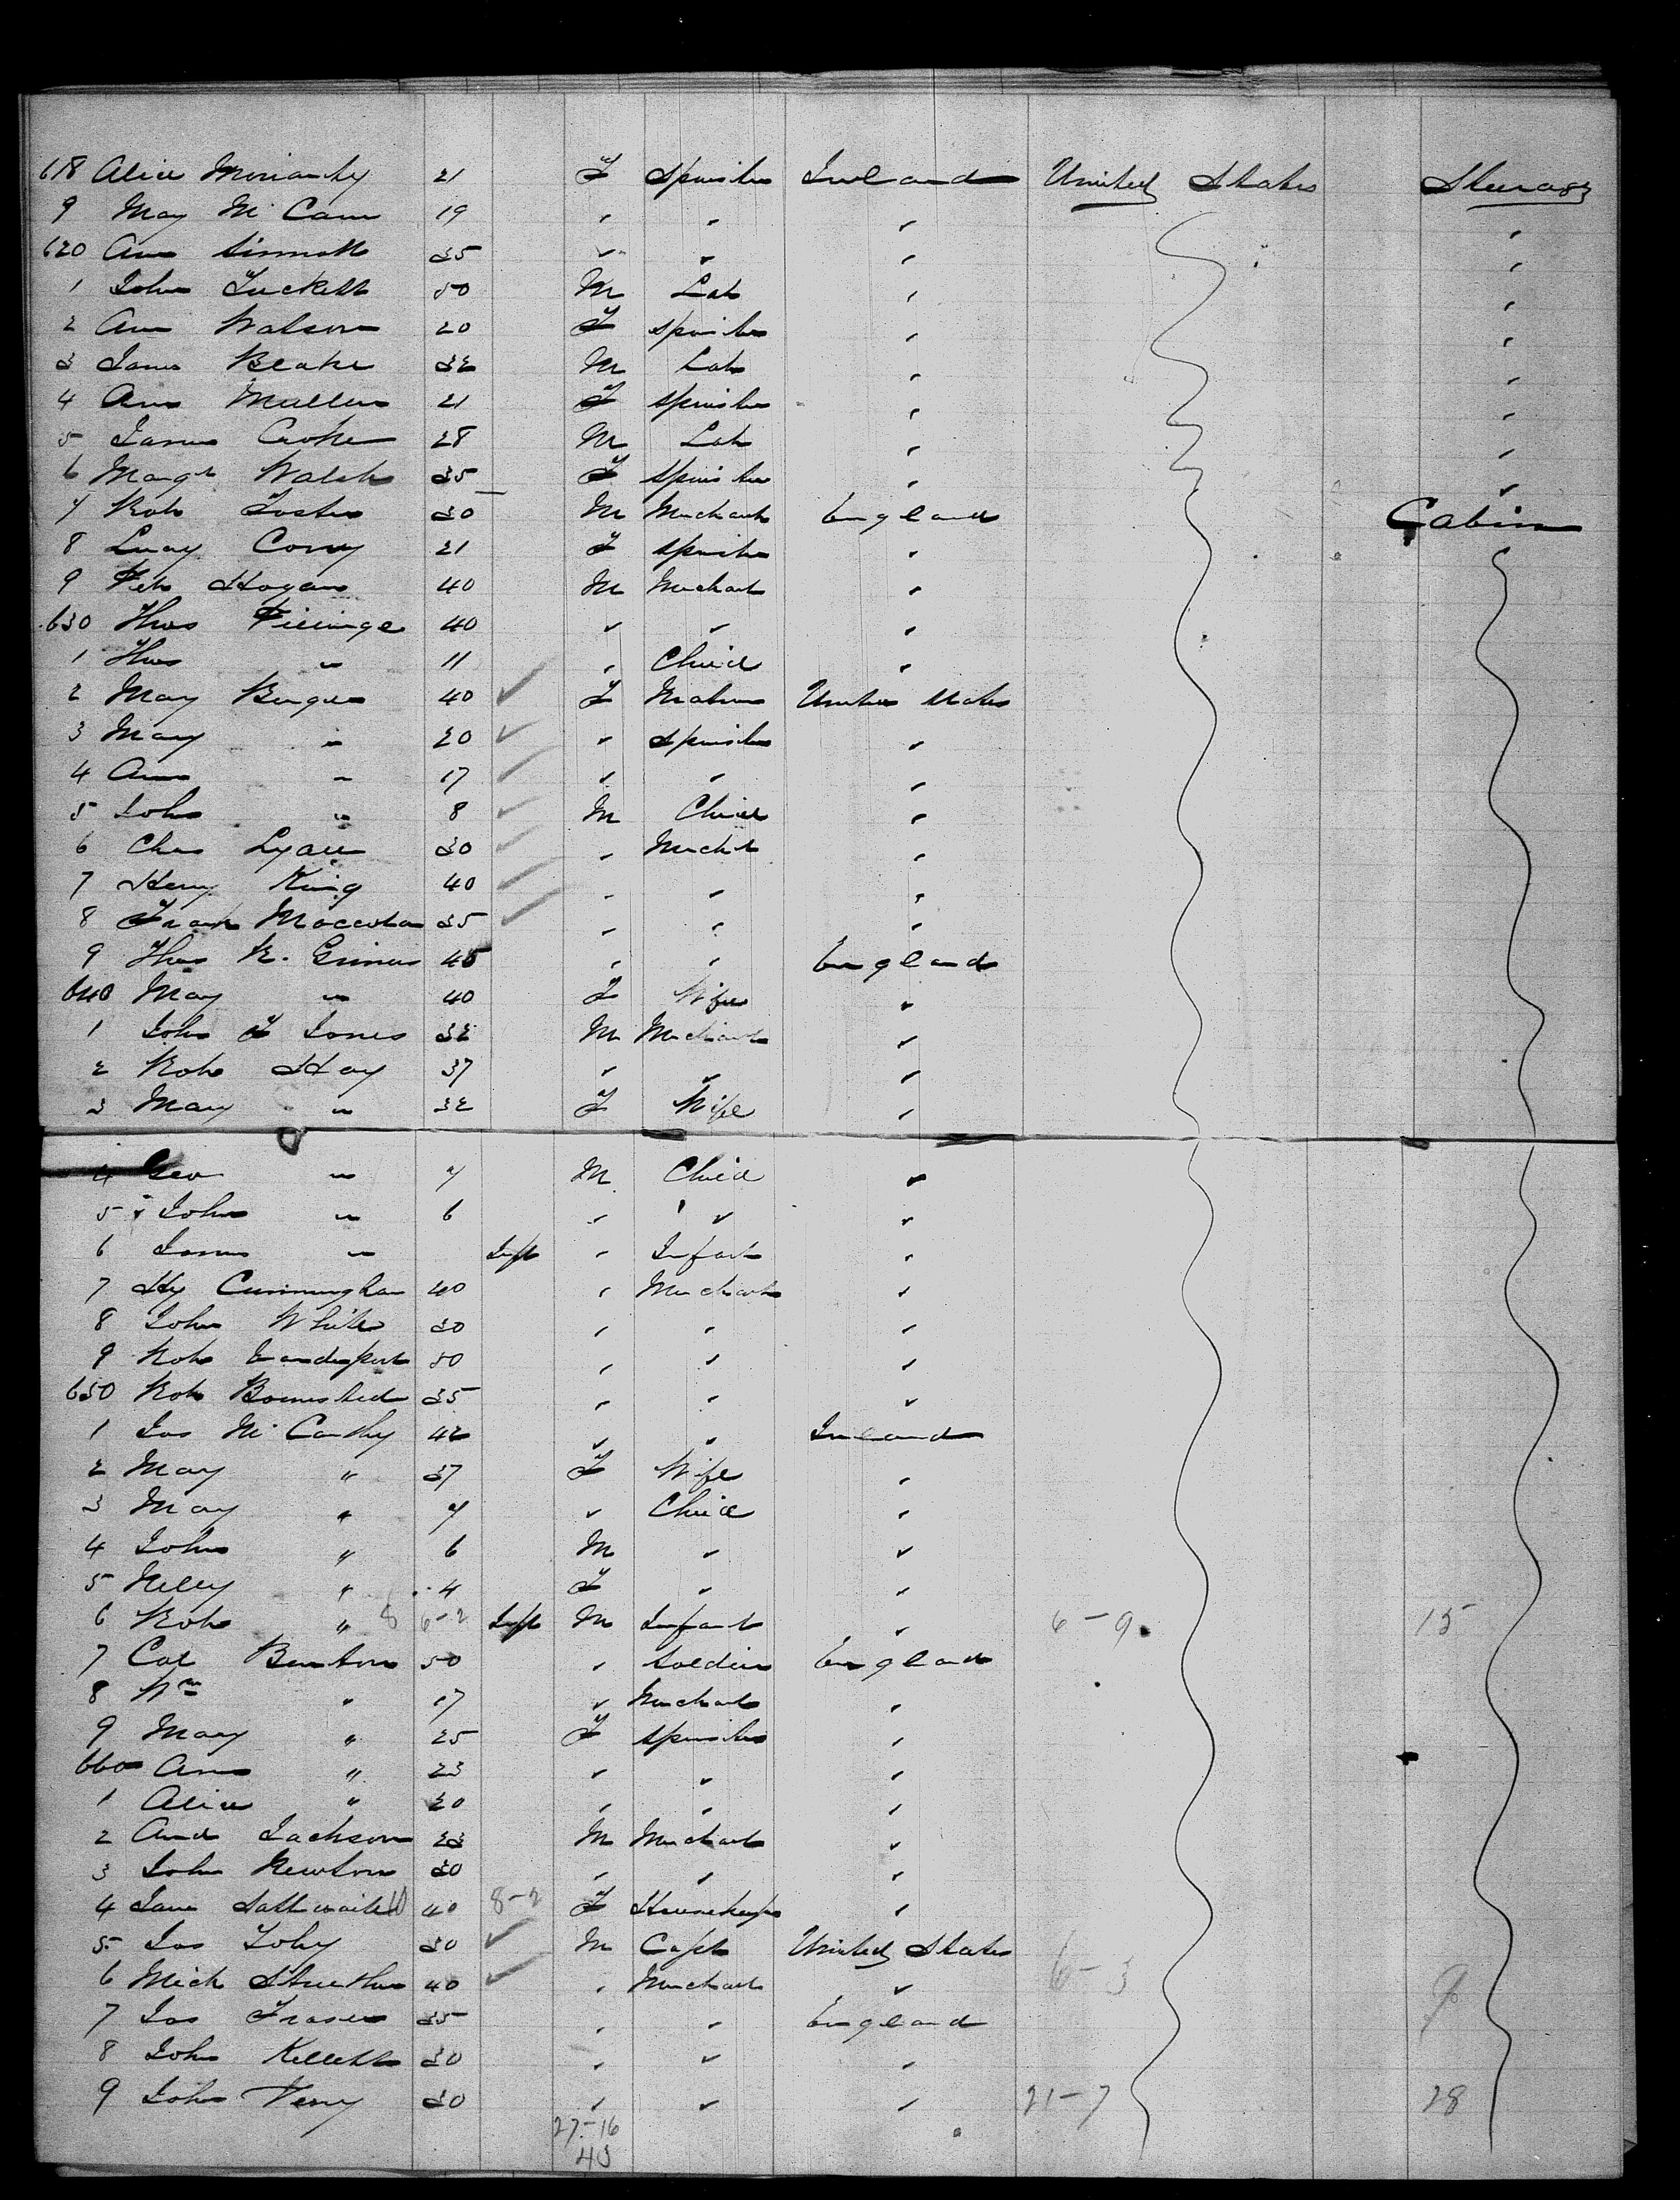 618 Alice Moriarty 21 F Spinster Ireland United States Steerage
9 Mary McCann 19 " " " "
620 Ann Sinnott 35 " " " "
1 John Tuckett 50 M Lab " "
2 Ann Watson 20 F Spinster " "
3 James Blake 32 M Lab " "
4 Ann Mullen 21 F Spinster " "
5 James Croke 28 M Lab " "
6 Margt Walsh 35 F Spinster " "
7 Robt Foster 30 M Merchant England Cabin
8 Lucy Corry 21 F Spinster "
9 Petr Hogan 40 M Merchant "
630 Thos 40 " " "
1 Thos " 11 " Child "
2 Mary 40 F Matron United States
3 Mary " 20 " Spinster "
4 Ann " 17 " " "
5 John " 8 M Child "
6 Chas Lyall 30 " Mercht "
7 Henry King 40 " " "
8 Frank 35 " " "
9 Thos R. Grimes 45 " " England
640 Mary " 40 F Wife "
1 John F Jones 32 M Merchant "
2 Robt Hay 37 " " "
3 Mary " 32 F Wife "
4 Geo " 7 M Child "
5 John " 6 " " "
6 James " Inft " Infant "
7 Hy Cunningham 40 " Merchant "
8 John White 30 " " "
9 Robt 50 " " "
650 Robt 35 " " "
1 Jas McCarthy 42 " " Ireland
2 Mary " 37 F Wife "
3 Mary " 7 " Child "
4 John " 6 M " "
5 Nelly " 4 F " "
6 Robt " 6-2 Inft M Infant " 6-9 15
7 Col Benton 50 " Soldier England
8 Wm " 17 " Merchant "
9 Mary " 25 F Spinster "
660 Ann " 23 " " "
1 Alice " 20 " " "
2 And Jackson 23 M Merchant "
3 John Newton 30 " " "
4 Jane 40 8-2 F Housekeeper "
5 Jas Toby 30 M Capt United States
6 Mich 40 " Merchant " 6-3 9
7 Jas Fraser 35 " " England
8 John Kellett 30 " " "
9 John Perry 30 " " " 21-7 28
27-16
43